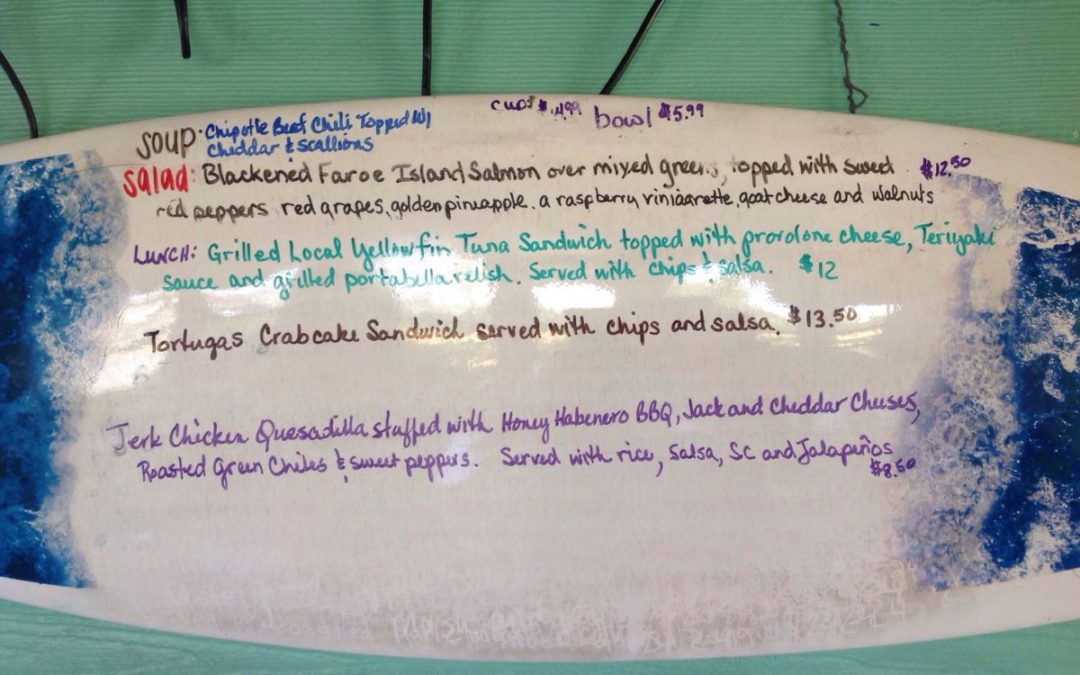 cup $4.99 bowl $5.99
Soup: Chipotle Beef Chili Topped w/
Cheddar & Scallions
Salad: Blackened Faroe Island Salmon over mixed greens, topped with sweet $12.50
red peppers, red grapes, golden pineapple, a raspberry viniagrette, goat cheese and walnuts
Lunch: Grilled Local Yellowfin Tuna Sandwich topped with provolone cheese, Teriyaki
Sauce and grilled portabella relish. Served with chips & salsa. $12
Tortugas Crabcake Sandwich served with chips and salsa. $13.50
Jerk Chicken Quesadilla stuffed with Honey Habenero BBQ, Jack and Cheddar Cheeses,
Roasted Green Chiles & sweet peppers. Served with rice, Salsa, SC and Jalapeños
$8.50